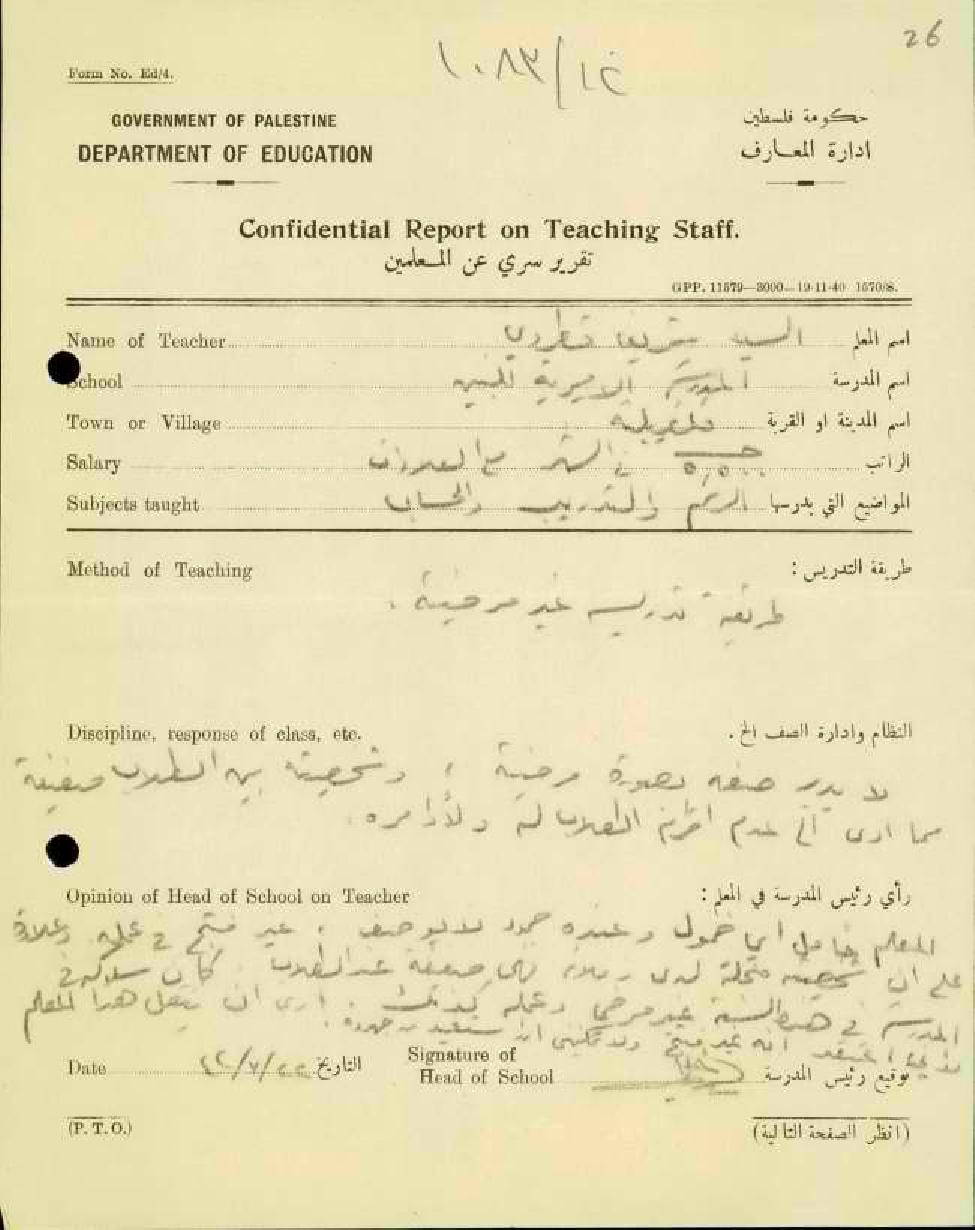 26
١٠٨٣/١٤
Form No. Ed/4.
GOVERNMENT OF PALESTINE
حكومة فلسطين
DEPARTMENT OF EDUCATION
ادارة المعارف
Confidential Report on Teaching Staff.
تقرير سري عن المعلمين
GPP. 11579—3000—19-11-40 1570/8.
Name of Teacher السيد شريف اسم المعلم
School المدرسة الاميرية للبنين اسم المدرسة
Town or Village قلقيلية اسم المدينة او القرية
Salary ٥,٥٠٠ في الشهر مع العلاوات الراتب
Subjects taught الرسم والتدريب والحساب المواضيع التي يدرسها
Method of Teaching طريقة التدريس :
طريقة تدريسه غير مرضية .
Discipline, response of class, etc. النظام وادارة الصف الخ .
لا يدير صفه بصورة مرضية ، وشخصيته بين الطلاب ضعيفة
مما ادى الى عدم الطلاب له ولأوامره .
Opinion of Head of School on Teacher رأي رئيس المدرسة في المعلم :
المعلم خامل وعنده خمول ، غير منتج في عمله وعلاوة
على ان شخصيته لدى ضعيفة عند الطلاب . كان سلوكه في
المدرسة في هذه السنة غير مرضي وعمله كذلك . ارى ان ينقل هذا المعلم
اعتقد انه غير منتج
Date ٢٢/٧/٤٢ التاريخ
Signature of
Head of School توقيع رئيس المدرسة
(P. T. O.)
(انظر الصفحة التالية)